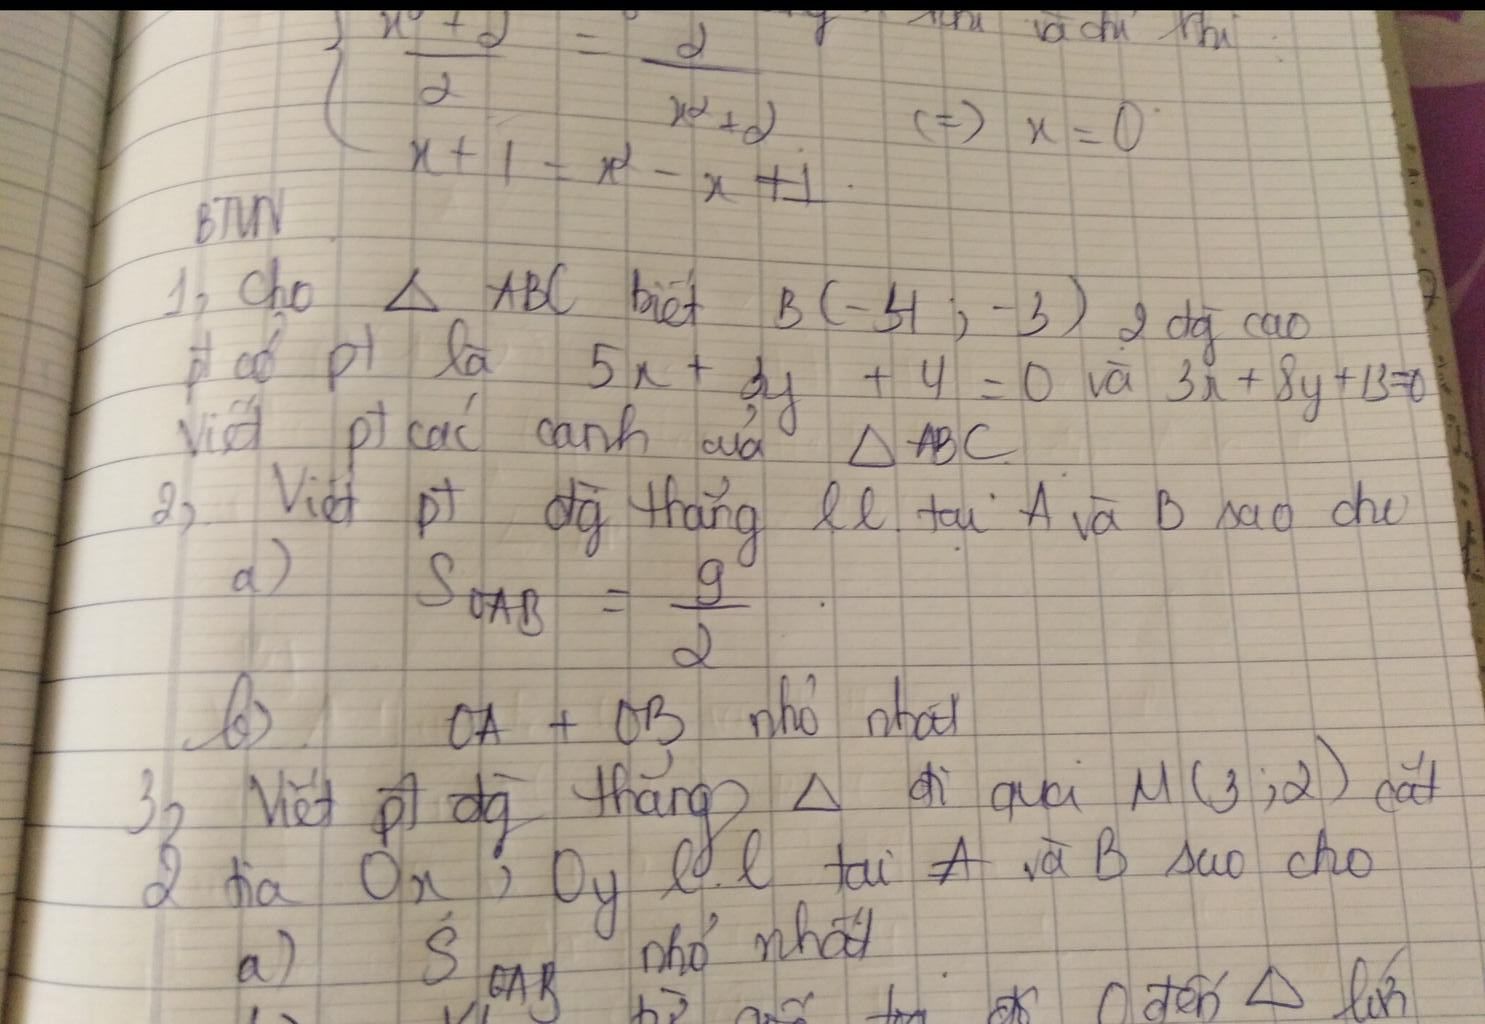 x² + 2 / 2 = 2 / x² + 2 <=> x = 0
và chỉ khi
x + 1 = x² - x + 1
BTVN
1, Cho △ ABC biết B(-4 ; -3) 2 đg cao
có pt là 5x + 3y + 4 = 0 và 3x + 8y + 13 = 0
Viết pt các cạnh của △ ABC
2, Viết pt đg thẳng ll tại A và B sao cho
a) S OAB = 9/2
b) OA + OB nhỏ nhất
3, Viết pt đg thẳng △ đi qua M(3 ; 2) cắt
2 tia Ox ; Oy l.l tại A và B sao cho
a) S OAB nhỏ nhất
O đến △ lớn